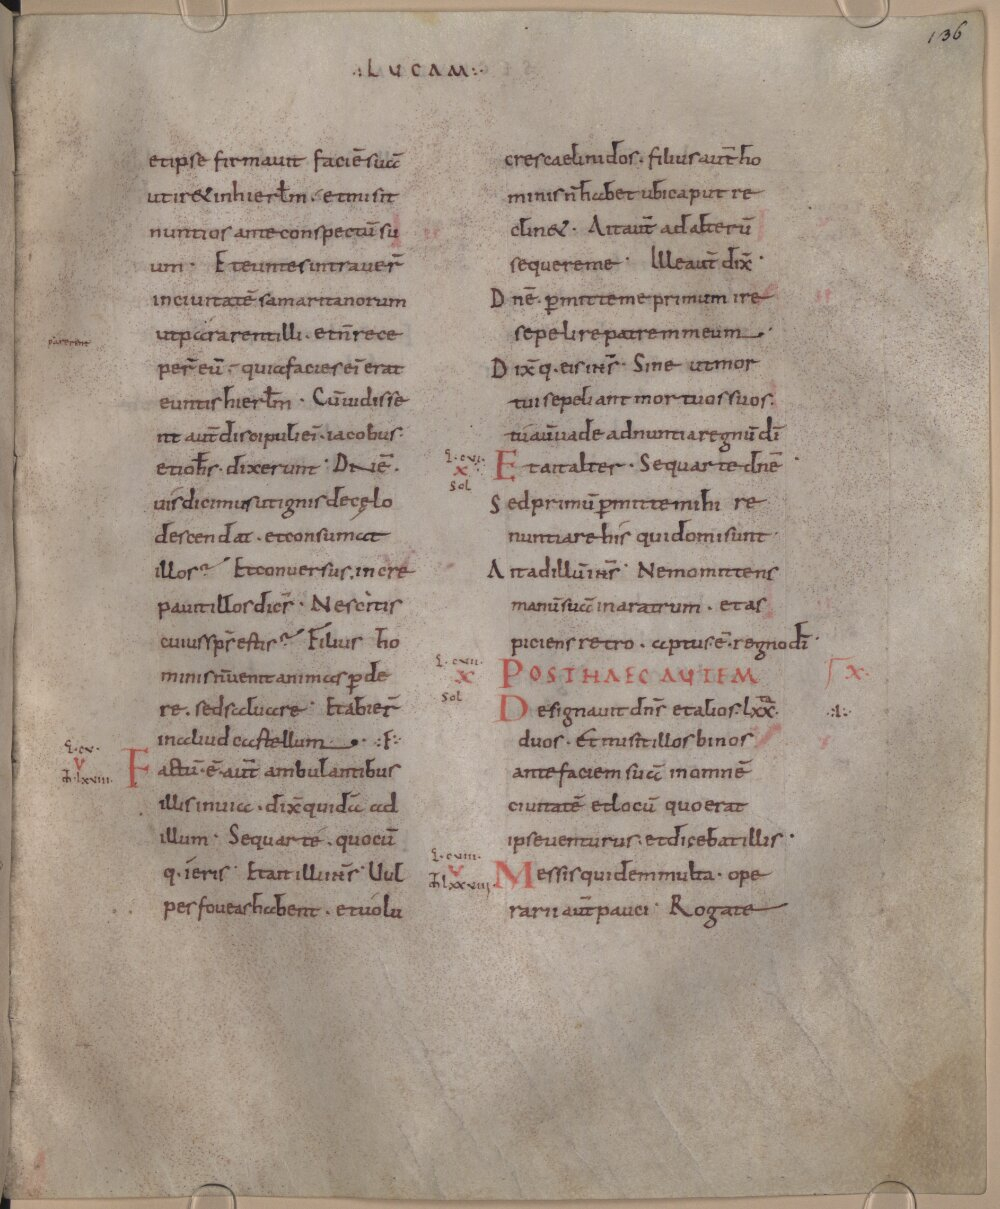 136
.:LUCAM:.
et ipse firmavit faciē suā
ut ir& in hierłm. et misit
nuntios ante conspectū su
um. Et euntes intraver̄
in civitatē samaritanorum
ut pararent illi. et n̄ rece
parerent
per̄ eū. quia facies ei̅ erat
euntis hierłm. Cū vidisse
nt aut̄ discipuli ei̅. iacobus.
et ioħs. dixerunt. Dñe.
vis dicimus ut ignis de cęlo
descendat. et consumat
illos? Et conversus. incre
pavit illos dicēs. Nescitis
cuius sp̄s estis? Filius ho
minis n̄ venit animas p̱de
re. sed salvare. Et abier̄
in aliud castellum. :F.
L. cv.
V
M̄ lxviii.
Factū. ē. aut̄ ambulantibus
illis in via. dix̄ quidā ad
illum. Sequar te. quocū
q. ieris. Et ait illi ih̄s. Vul
pes foveas habent. et volu
cres caeli nidos. filius aut̄ ho
minis n̄ habet ubi caput re
clin&. Ait aut̄ ad alterū
sequere me. Ille aut̄ dix̄.
Dñē. p̱mitte me primum ire
sepelire patrem meum.
Dix̄q. ei ih̄s. Sine ut mor
tui sepeliant mortuos suos.
tu aū vade adnuntia regnū dī
L. cvi.
X
Sol
Et ait alter. Sequar te dñē
Sed primū p̱mitte mihi re
nuntiare his qui domi sunt.
Ait ad illū ih̄s. Nemo mittens
manū suā in aratrum. et as
piciens retro. aptus. ē. regno dī.
L. cvii.
X
Sol
POST HAEC AUTEM
X.
Designavit dñs et alios. lxxᵗᵃ.
:l:.
duos. Et misit illos binos
ante faciem suā in omnē
civitatē et locū quo erat
ipse venturus. et dicebat illis.
L. cviii.
V
M̄ lxxviii
Messis quidem multa. ope
rarii aut̄ pauci. Rogate